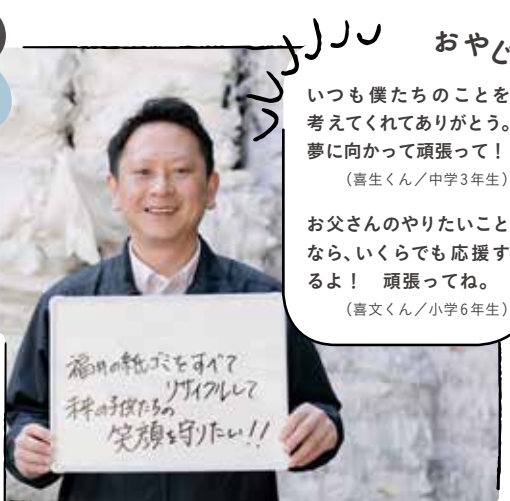 おやじ
いつも僕たちのことを
考えてくれてありがとう。
夢に向かって頑張って！
（喜生くん／中学3年生）
お父さんのやりたいこと
なら、いくらでも応援す
るよ！　頑張ってね。
（喜文くん／小学6年生）
福井の紙ゴミをすべて
リサイクルして
未来の子供たちの
笑顔を守りたい!!